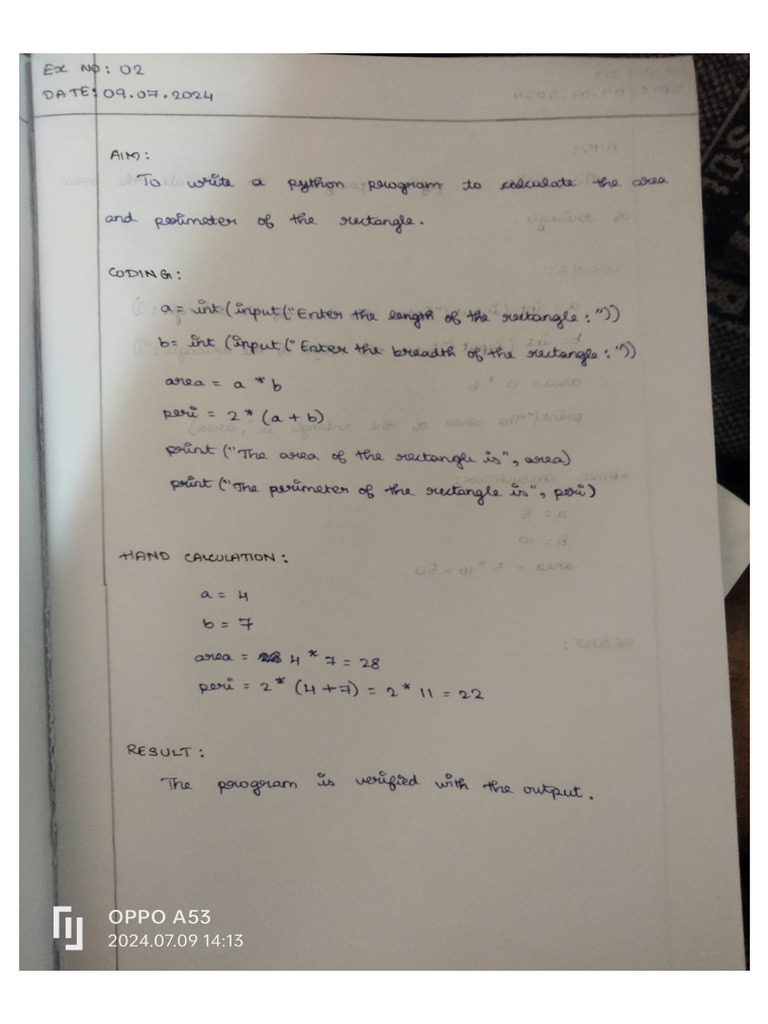 EX NO: 02
DATE: 09.07.2024
AIM:
To write a python program to calculate the area
and perimeter of the rectangle.
CODING:
a = int (input("Enter the length of the rectangle :"))
b= int (input ("Enter the breadth of the rectangle :"))
area = a * b
peri = 2 * (a + b)
print ("The area of the rectangle is", area)
print ("The perimeter of the rectangle is", peri)
HAND CALCULATION:
a = 4
b = 7
area = 4 * 7 = 28
peri = 2 * (4+7) = 2 * 11 = 22
RESULT:
The program is verified with the output.
OPPO A53
2024.07.09 14:13